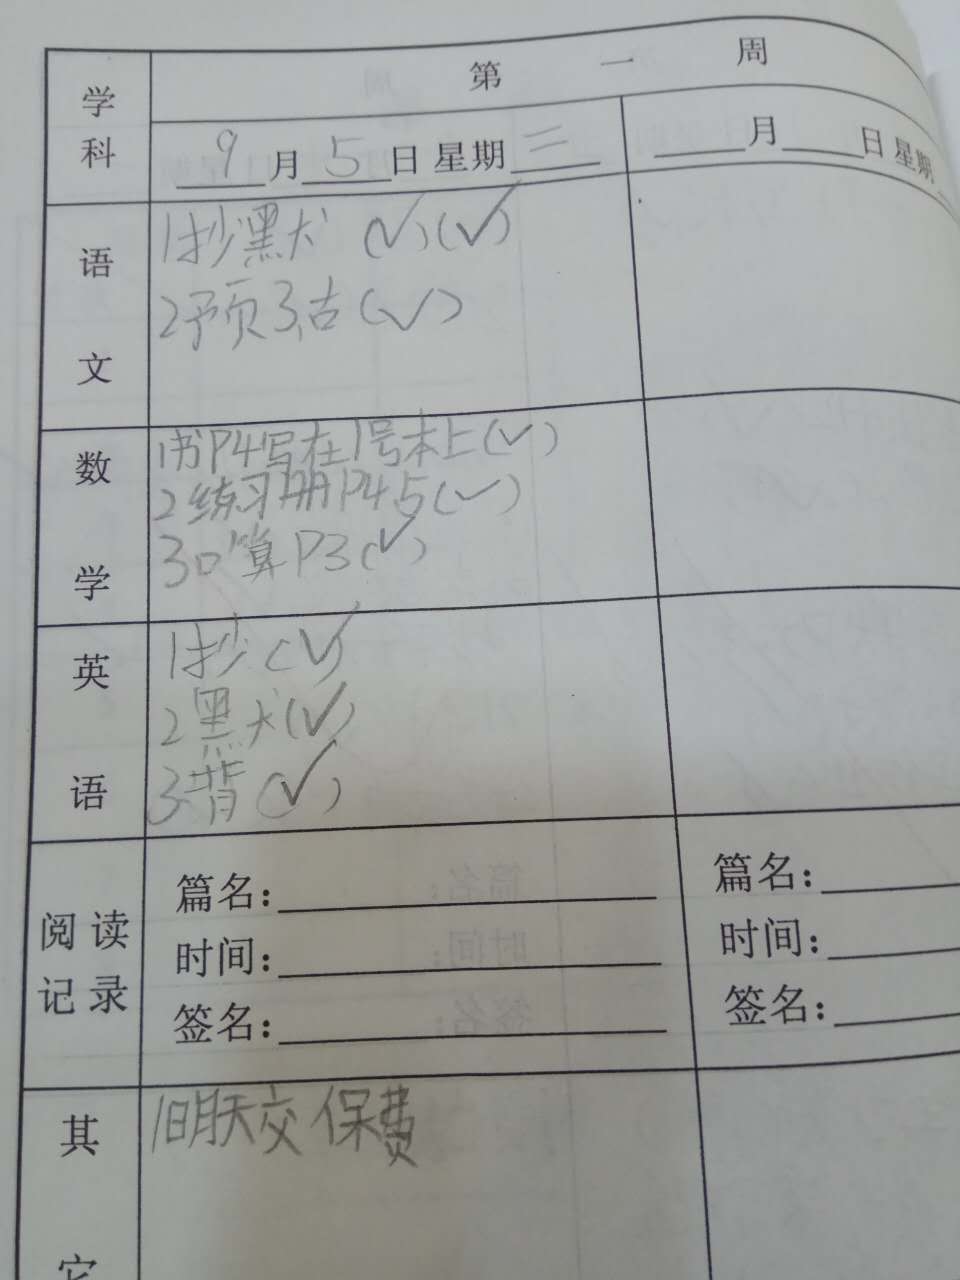 学科
第 一 周
9月5日 星期三
月 日 星期
语文
1抄默 (✓)(✓)
2预3,古(✓)
数学
1书P4写在1号本上(✓)
2练习册P4 5(✓)
3口算P3(✓)
英语
1抄(✓)
2默(✓)
3背(✓)
阅读记录
篇名:
时间:
签名:
篇名:
时间:
签名:
其它
1明天交保费